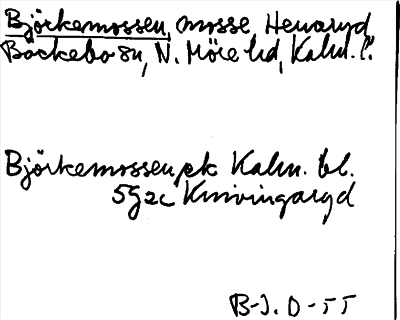 Björkemossen, mosse, Henaryd
Bäckebo sn, N. Möre hd, Kalm. l.
Björkemossen, ek Kalm. bl.
5g2c Knivingaryd
B-J. O-TT